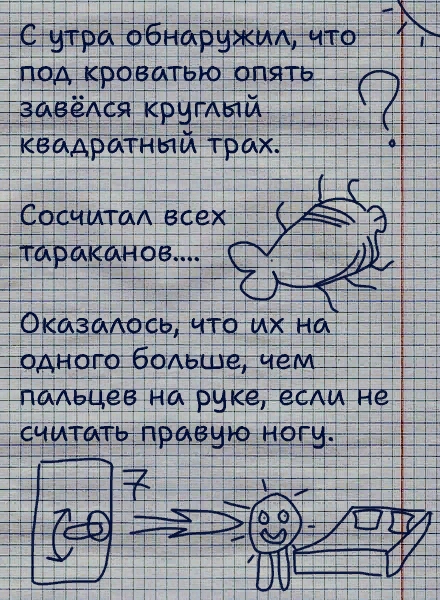 С утра обнаружил, что
под кроватью опять
завёлся круглый
квадратный трах.
?
Сосчитал всех
тараканов....
Оказалось, что их на
одного больше, чем
пальцев на руке, если не
считать правую ногу.
7